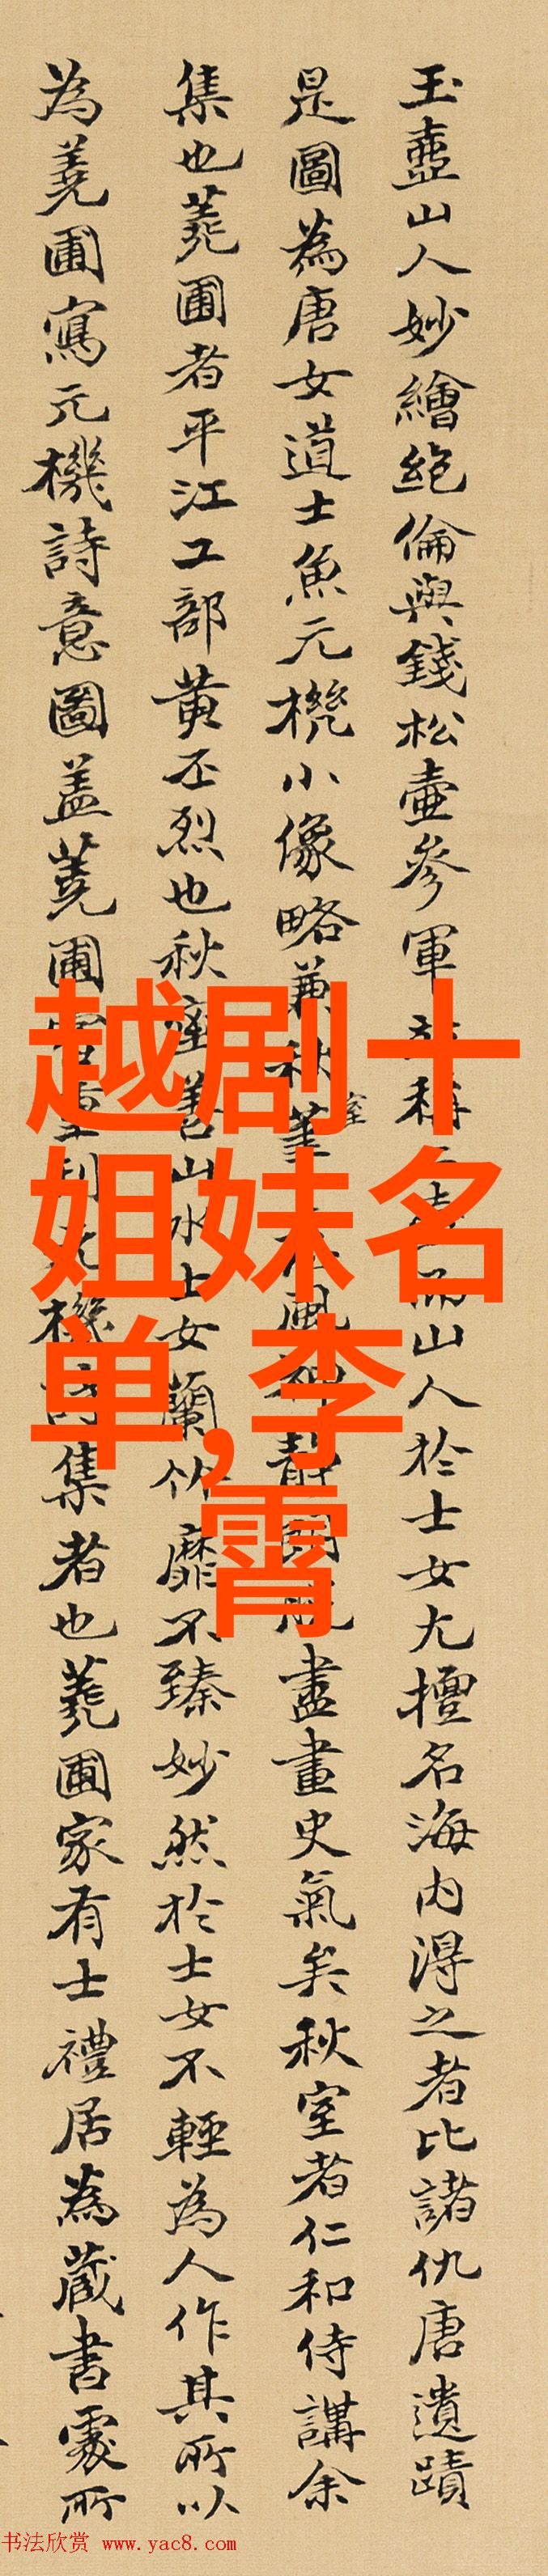 玉壺山人妙繪絶倫與錢松壺參軍
稱
山人於士女尤擅名海内淂之者比諸仇唐遺蹟
是圖為唐女道士魚元机小像略兼秋
風
盡畫史氣矣秋室者仁和侍講余
集也蕘圃者平江工部黄丕烈也秋室善山水士女蘭竹靡不臻妙然於士女不輕為人作其所以
為蕘圃寫元機詩意圖盖蕘圃
機
集者也蕘圃家有士禮居為蔵書處所
越剧十
姐妹名
单,李
霄
书法欣赏 www.yac8.com